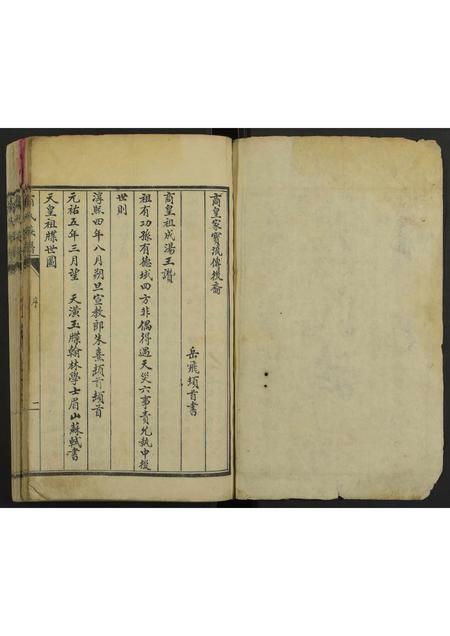 商皇家寶流傳後裔
岳飛頓首書
商皇祖成湯王讚
祖有功孫有德域四方非偶得遇天災六事責允執中授
世則
淳熙四年八月朔旦宣教郎朱熹頓首頓首
元祐五年三月望　天潢玉牒翰林學士眉山蘇軾書
天皇祖牒世圖
序
二